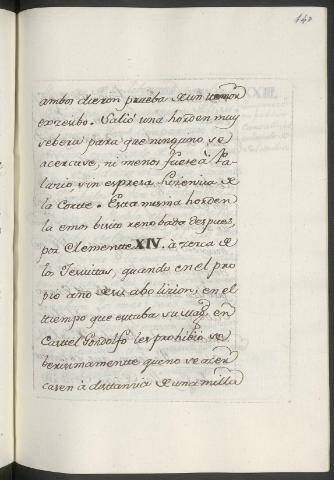 140
ambos dieron prueba de un temor
exzesibo. Salió una horden muy
sebera para que ninguno se
acercase, ni menos fuese à Pa-
lazio, sin espresa lizensia de
la Corte. Esta misma horden
la emos bisto renobada despues,
por Clemente XIV. à zerca de
los Jesuitas, quando en el pro
pio año de su abolizion; en el
tiempo que estaba su Mag. en
Castel Gondolfo les prohibió se
berisimamente que no se acer
casen à distansia de una milla